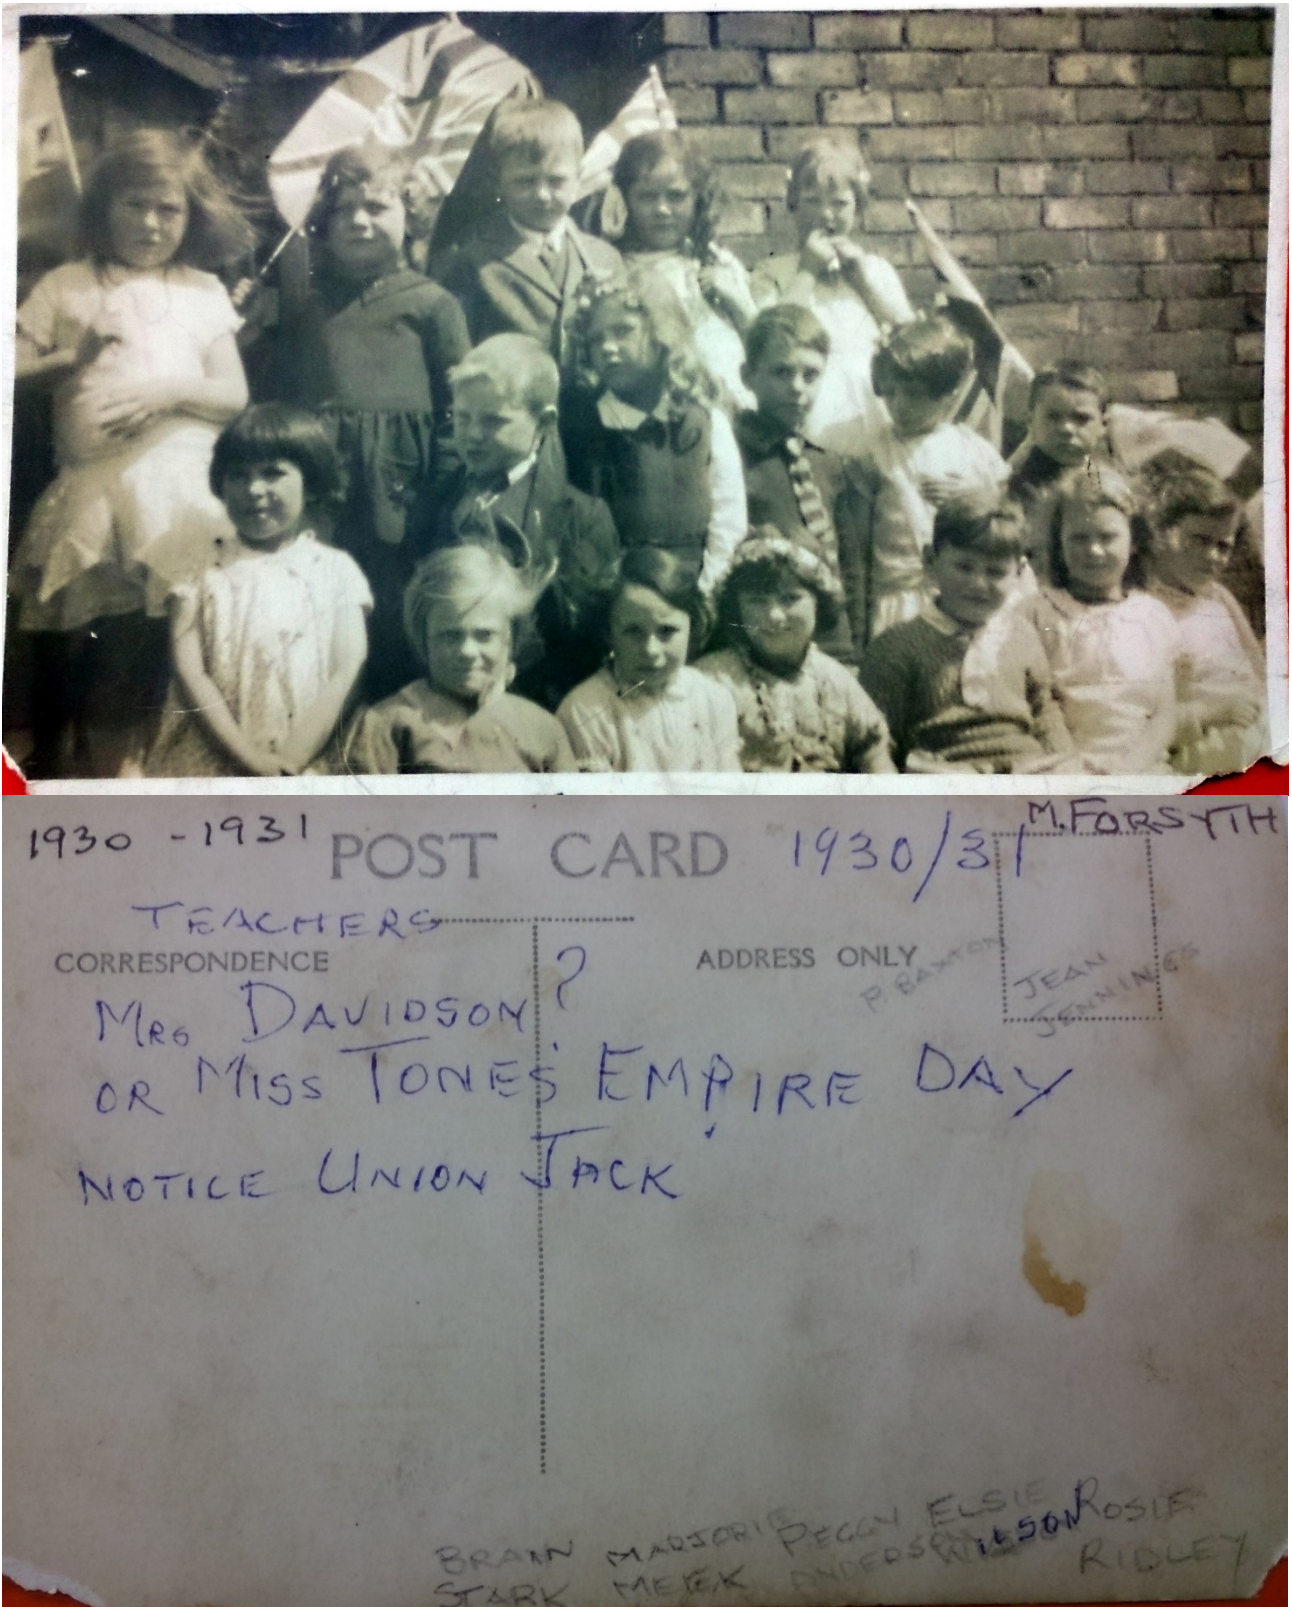 1930 - 1931
POST CARD
1930/31
M. FORSYTH
TEACHERS
CORRESPONDENCE
?
ADDRESS ONLY
P. BAXTON
JEAN
JENNINGS
MRS DAVIDSON
OR MISS TONES EMPIRE DAY
NOTICE UNION JACK
BRAIN MARJORIE PEGGY ELSIE ROSIE
STARK MEEK ANDERSON WILSON RIDLEY